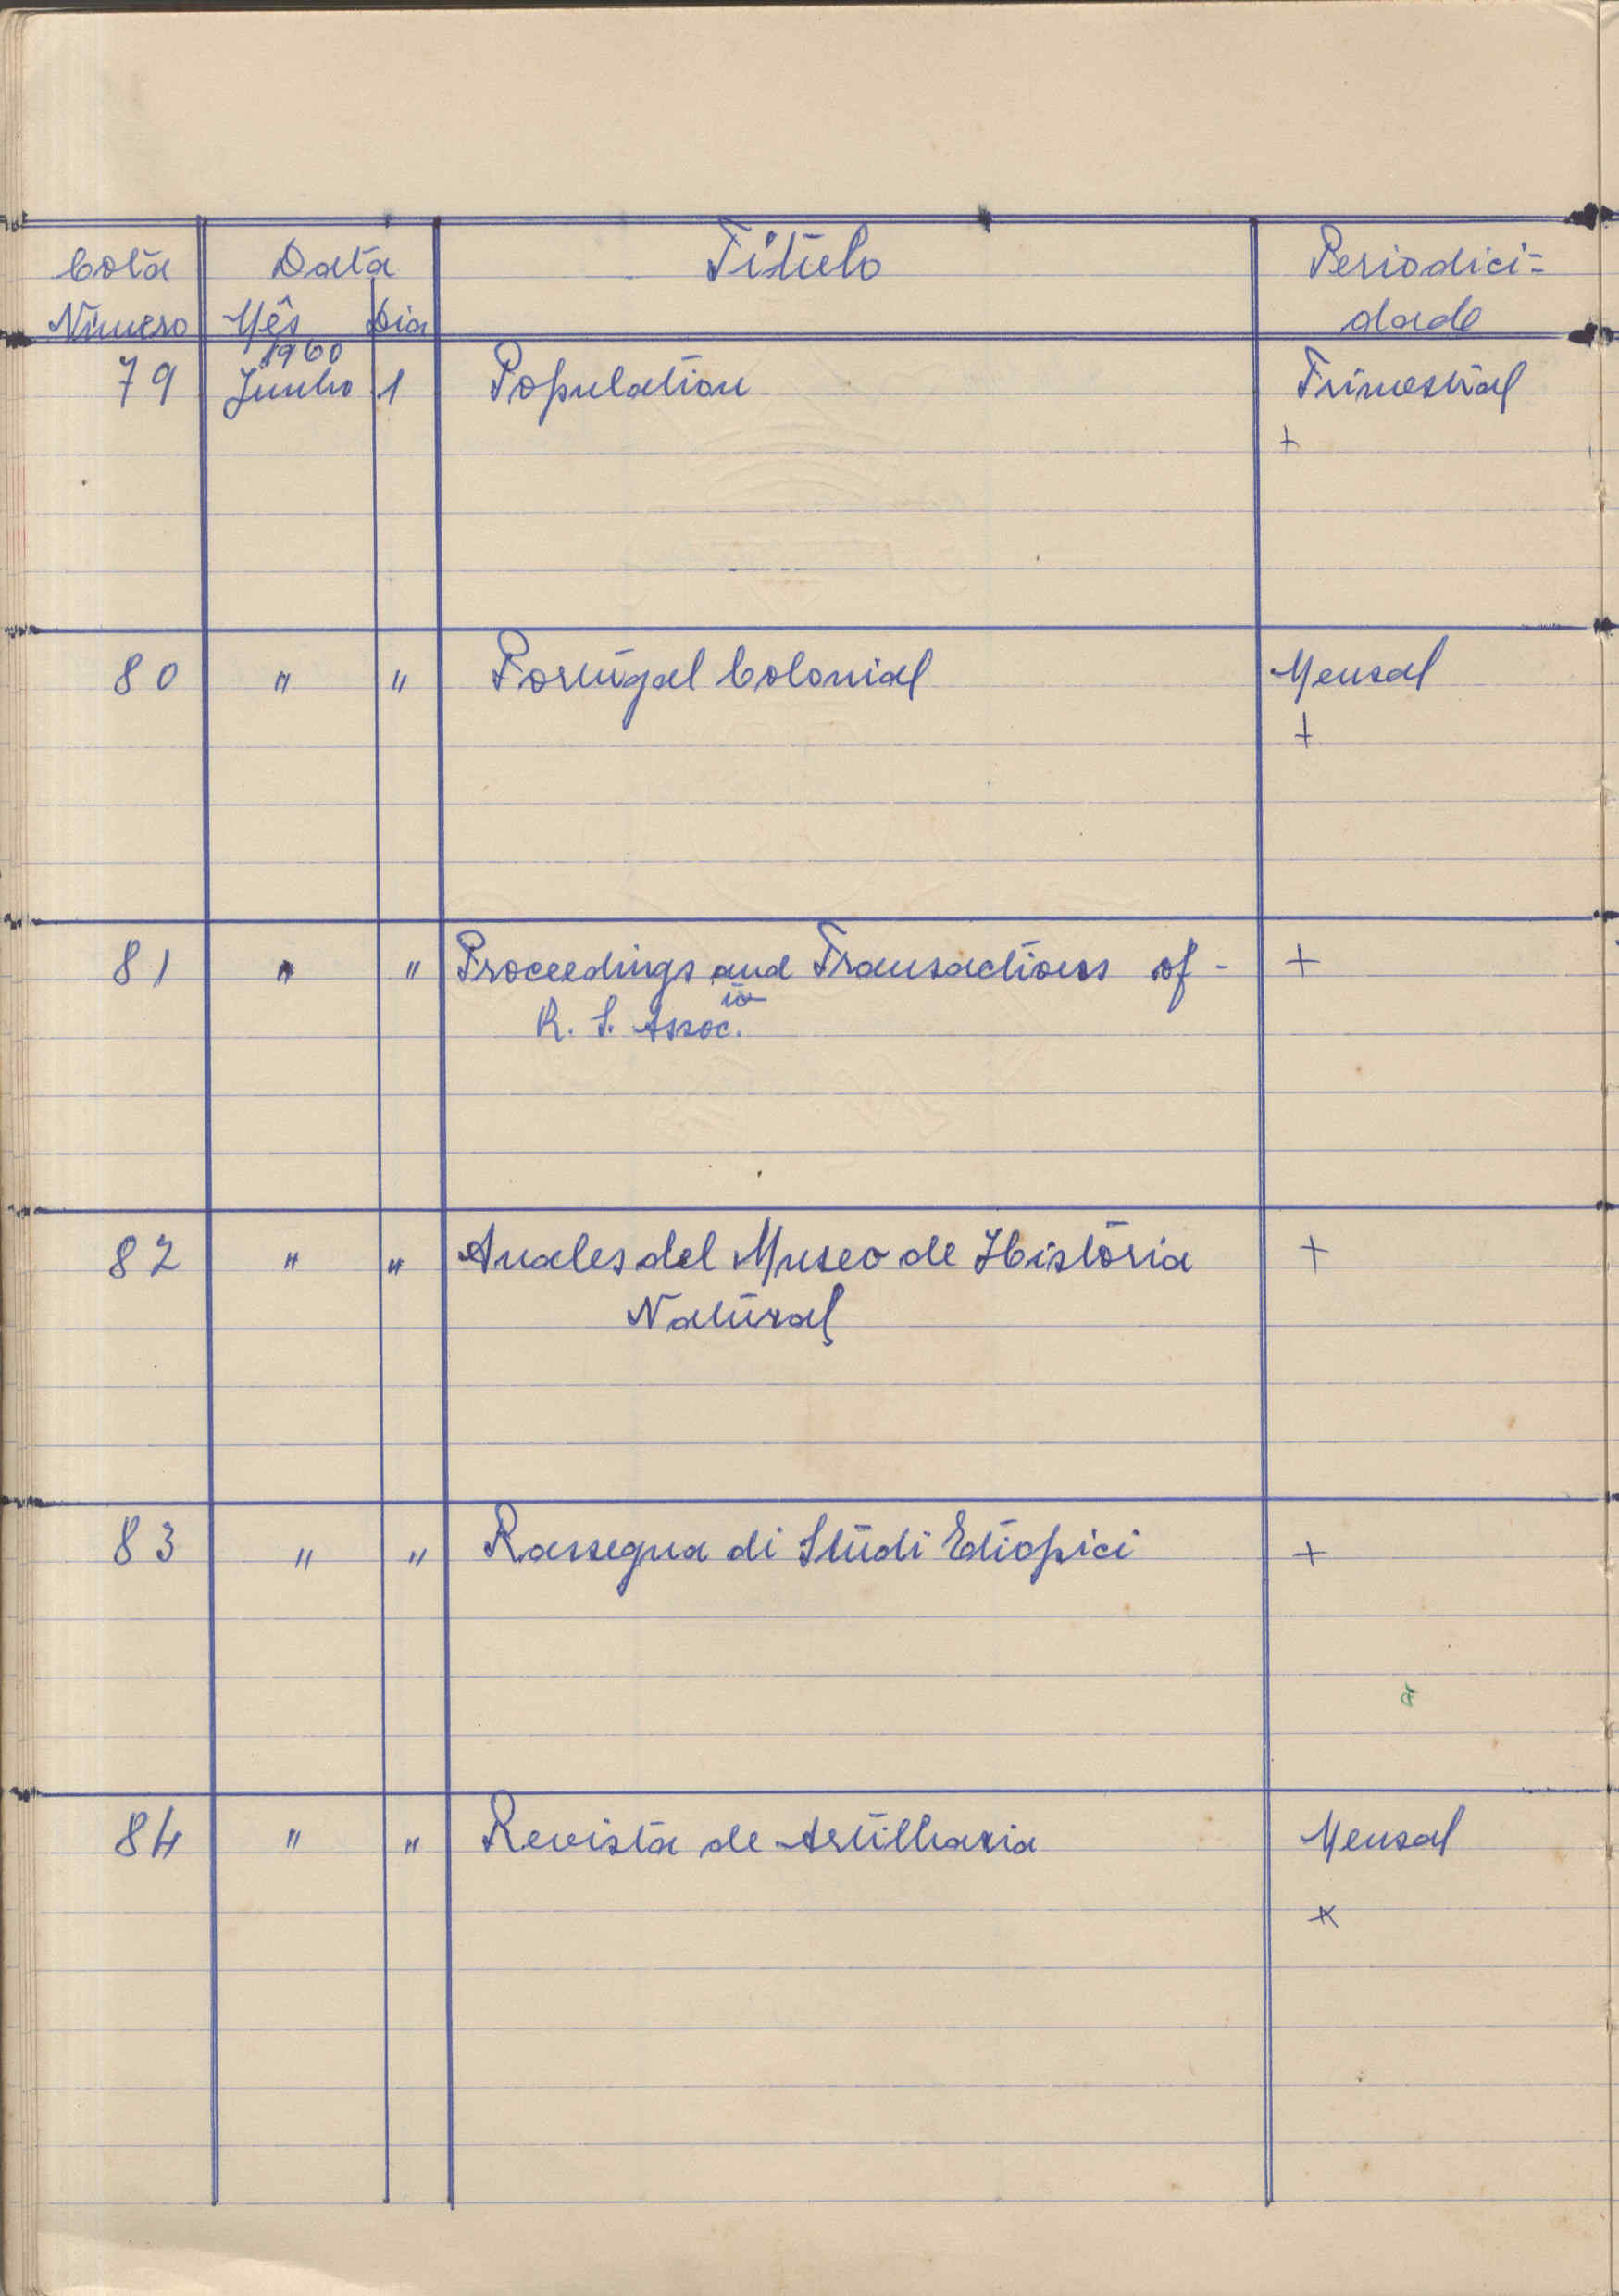 Cota Data Título Periodici=
Número Mês Dia dade
1960
79 Junho 1 Population Trimestral
+
80 " " Portugal Colonial Mensal
+
81 " " Proceedings and Transactions of - +
R. S. Assoc.
82 " " Anales del Museo de História +
Natural
83 " " Rassegna di Studi Etiopici +
84 " " Revista de Artilharia Mensal
x